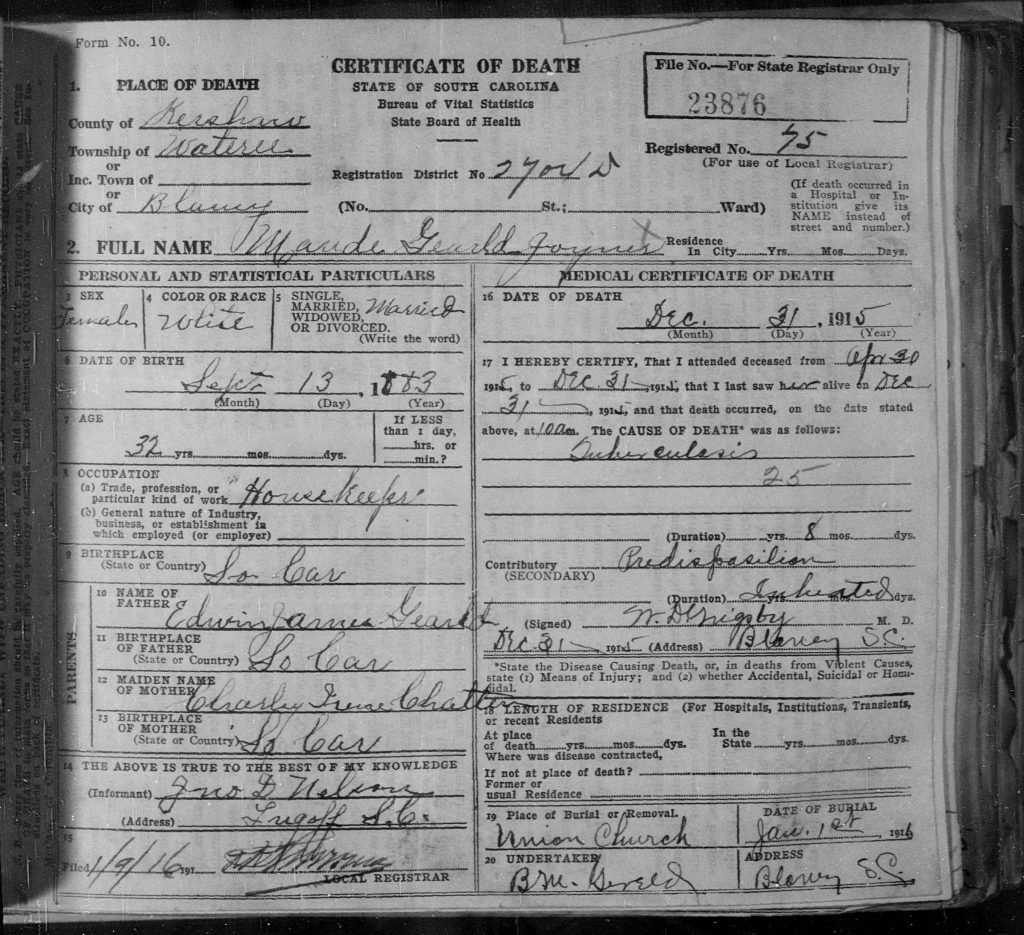 Form No. 10.
CERTIFICATE OF DEATH
STATE OF SOUTH CAROLINA
Bureau of Vital Statistics
State Board of Health
File No.—For State Registrar Only
23876
1. PLACE OF DEATH
County of Kershaw
Township of Wateree
or
Inc. Town of
or
City of Blaney
Registration District No 2704 D
Registered No. 75
(For use of Local Registrar)
(No. St.; Ward)
(If death occurred in
a Hospital or In-
stitution give its
NAME instead of
street and number.)
2. FULL NAME Maude Gearld Joyner
Residence
In City Yrs. Mos. Days.
PERSONAL AND STATISTICAL PARTICULARS
3 SEX
Female
4 COLOR OR RACE
White
5 SINGLE,
MARRIED,
WIDOWED,
OR DIVORCED.
Married
(Write the word)
6 DATE OF BIRTH
Sept 13, 1883
(Month) (Day) (Year)
7 AGE
32 yrs. mos. dys.
If LESS
than 1 day,
hrs. or
min.?
8 OCCUPATION
(a) Trade, profession, or
particular kind of work Housekeeper
(b) General nature of Industry,
business, or establishment in
which employed (or employer)
9 BIRTHPLACE
(State or Country) So Car
PARENTS
10 NAME OF
FATHER
Edwin James Gearld
11 BIRTHPLACE
OF FATHER
(State or Country) So Car
12 MAIDEN NAME
OF MOTHER
Irene
13 BIRTHPLACE
OF MOTHER
(State or Country) So Car
14 THE ABOVE IS TRUE TO THE BEST OF MY KNOWLEDGE
(Informant) Jno D Nelson
(Address) Lugoff S.C.
15
Filed 1/9/16 191
LOCAL REGISTRAR
MEDICAL CERTIFICATE OF DEATH
16 DATE OF DEATH
Dec. 31, 1915
(Month) (Day) (Year)
17 I HEREBY CERTIFY, That I attended deceased from Apr 30
1915, to Dec 31 1915, that I last saw her alive on Dec
31, 1915, and that death occurred, on the date stated
above, at 10 am. The CAUSE OF DEATH* was as follows:
Tuberculosis
25
(Duration) yrs. 8 mos. dys.
Contributory Predisposition
(SECONDARY)
(Duration) Inherited yrs. mos. dys.
(Signed) W. D. Grigsby M. D.
Dec. 31, 1915 (Address) Blaney S.C.
*State the Disease Causing Death, or, in deaths from Violent Causes,
state (1) Means of Injury; and (2) whether Accidental, Suicidal or Homi-
cidal.
18 LENGTH OF RESIDENCE (For Hospitals, Institutions, Transients,
or recent Residents
At place
of death yrs. mos. dys.
In the
State yrs. mos. dys.
Where was disease contracted,
If not at place of death?
Former or
usual Residence
19 Place of Burial or Removal.
Union Church
DATE OF BURIAL
Jan. 1st 1916
20 UNDERTAKER
B M. Gerald
ADDRESS
Blaney S.C.